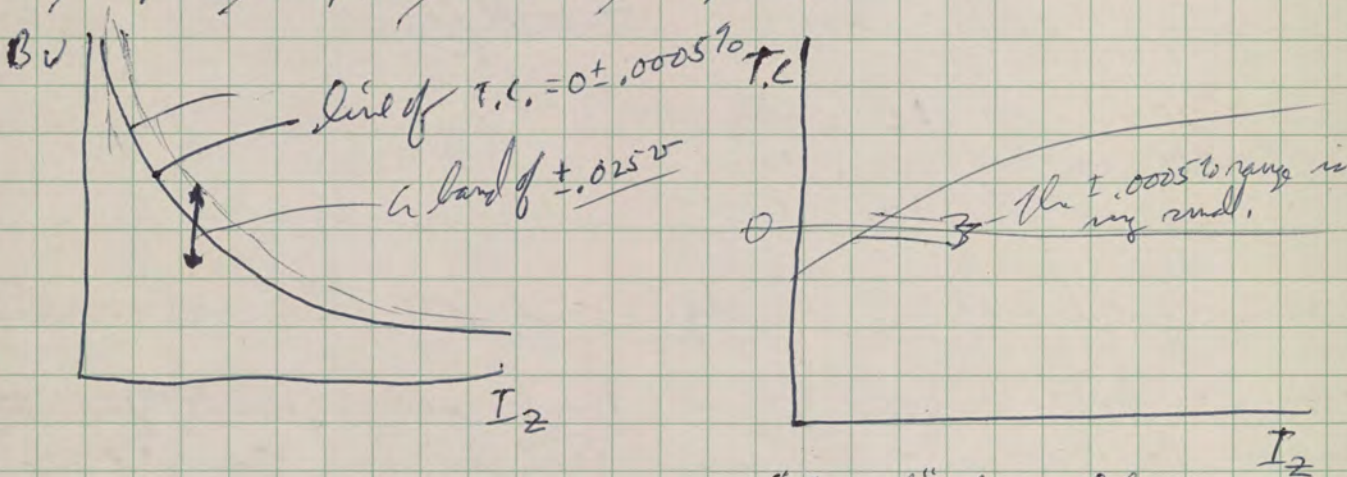 Bv
line of T.C. = 0 ± .0005%
a band of ± .025v
Iz
T.C
0
The ± .0005% range is
very small.
Iz